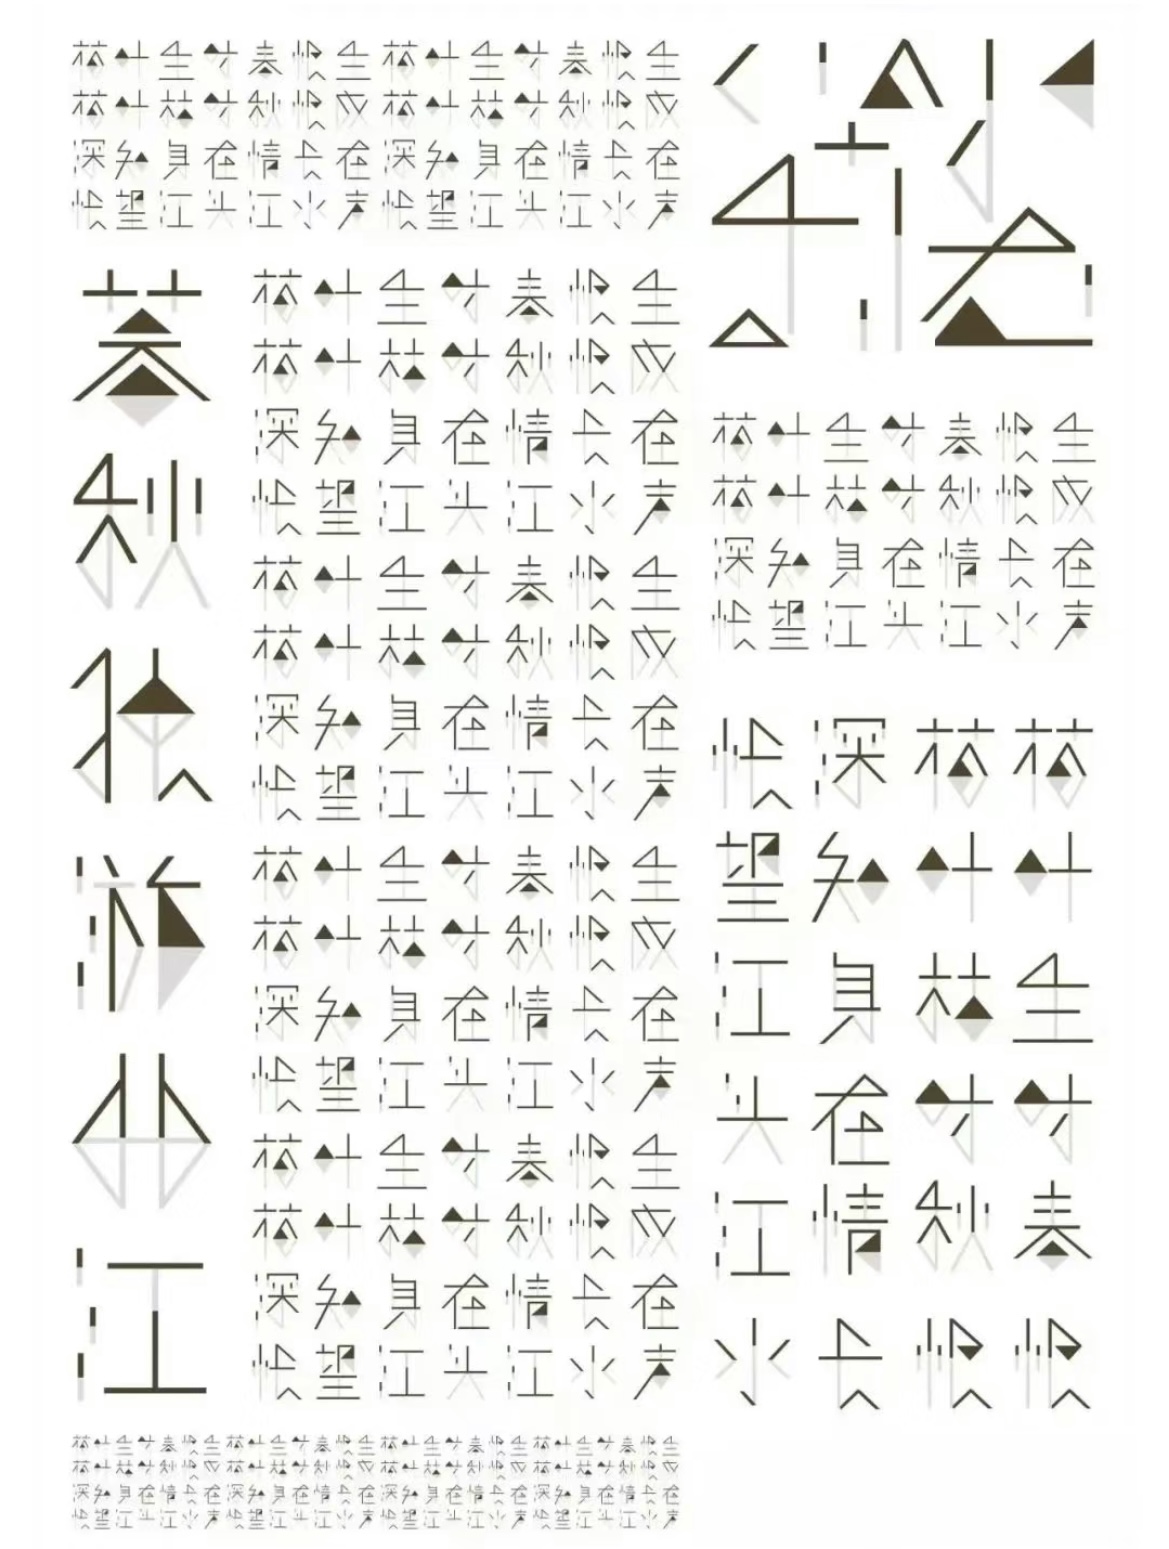 荷叶生时春恨生荷叶生时春恨生
荷叶枯时秋恨成荷叶枯时秋恨成
深知身在情长在深知身在情长在
怅望江头江水声怅望江头江水声
暮秋独游曲江
荷叶生时春恨生
荷叶枯时秋恨成
深知身在情长在
怅望江头江水声
荷叶生时春恨生
荷叶枯时秋恨成
深知身在情长在
怅望江头江水声
荷叶生时春恨生
荷叶枯时秋恨成
深知身在情长在
怅望江头江水声
荷叶生时春恨生
荷叶枯时秋恨成
深知身在情长在
怅望江头江水声
荷叶生时春恨生
荷叶枯时秋恨成
深知身在情长在
怅望江头江水声
荷叶生时春恨
荷叶枯时秋恨
深知身在情长
怅望江头江水
荷叶生时春恨生荷叶生时春恨生荷叶生时春恨生荷叶生时春恨生
荷叶枯时秋恨成荷叶枯时秋恨成荷叶枯时秋恨成荷叶枯时秋恨成
深知身在情长在深知身在情长在深知身在情长在深知身在情长在
怅望江头江水声怅望江头江水声怅望江头江水声怅望江头江水声